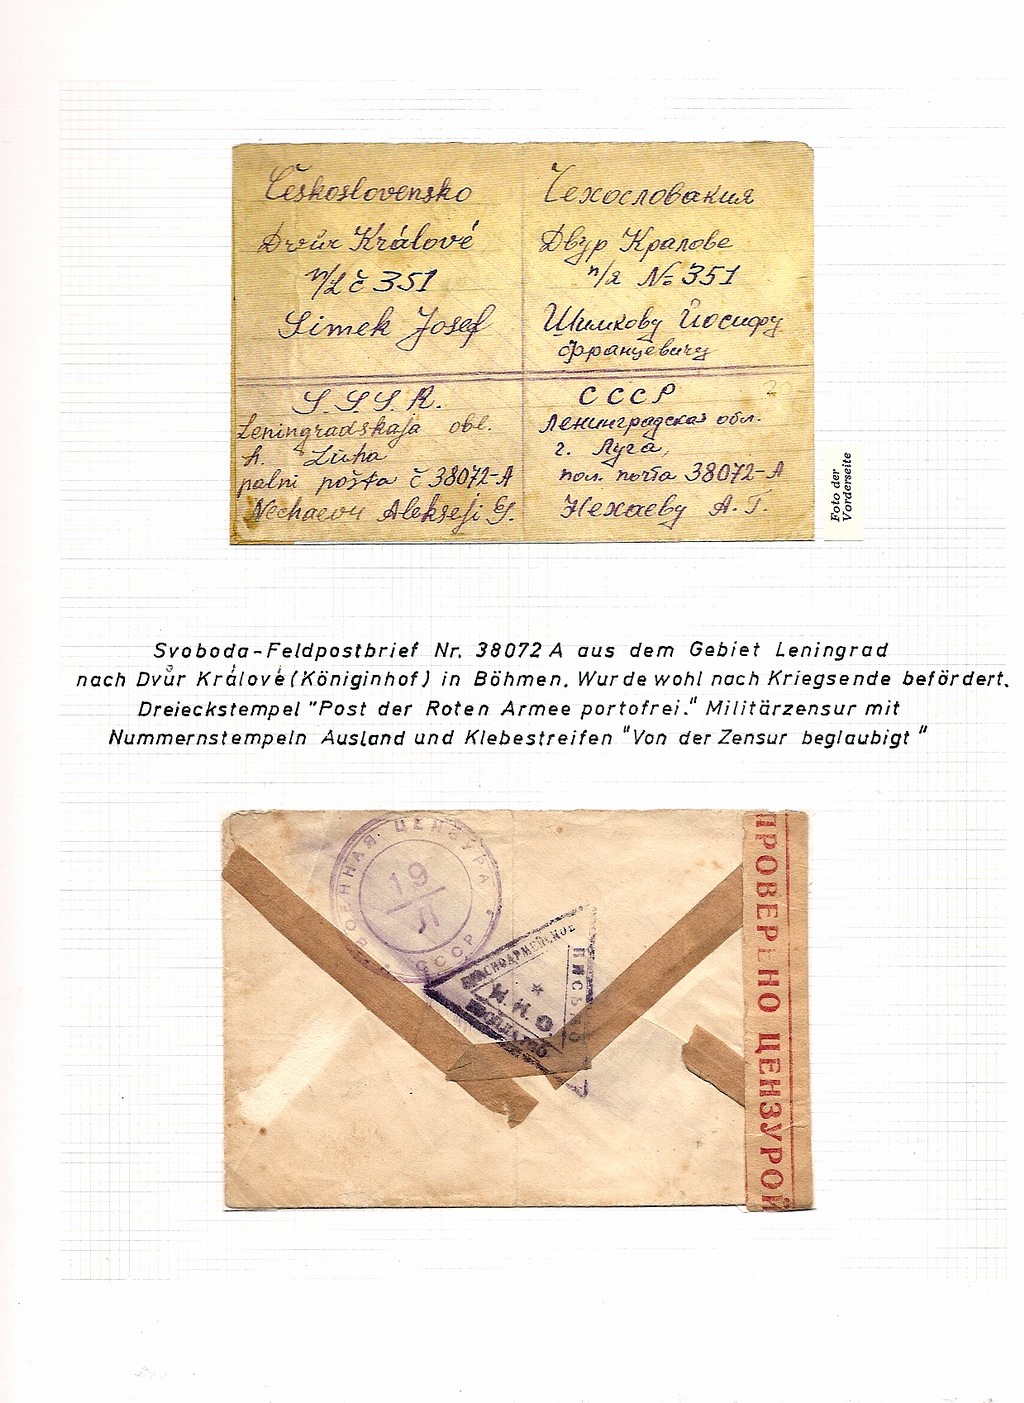 Československo
Dvůr Králové
p/s č 351
Šimek Josef
Чехословакия
Двур Кралове
п/я № 351
Шимкову Йосифу
Францевичу
S.S.S.R.
Leningradskaja obl.
h. Luha
polní pošta č 38072-A
Nechaevu Aleksěji G.
СССР
Ленинградская обл.
г. Луга,
пол. почта 38072-А
Нехаеву А. Г.
20
Foto der
Vorderseite
Svoboda-Feldpostbrief Nr. 38072 A aus dem Gebiet Leningrad
nach Dvůr Králové (Königinhof) in Böhmen. Wurde wohl nach Kriegsende befördert.
Dreieckstempel "Post der Roten Armee portofrei." Militärzensur mit
Nummernstempeln Ausland und Klebestreifen "Von der Zensur beglaubigt"
ВОЕННАЯ ЦЕНЗУРА
19/Л
СССР
КРАСНОАРМЕЙСКОЕ
ПИСЬМО
БЕСПЛАТНО
ПРОВЕРЕНО ЦЕНЗУРОЙ